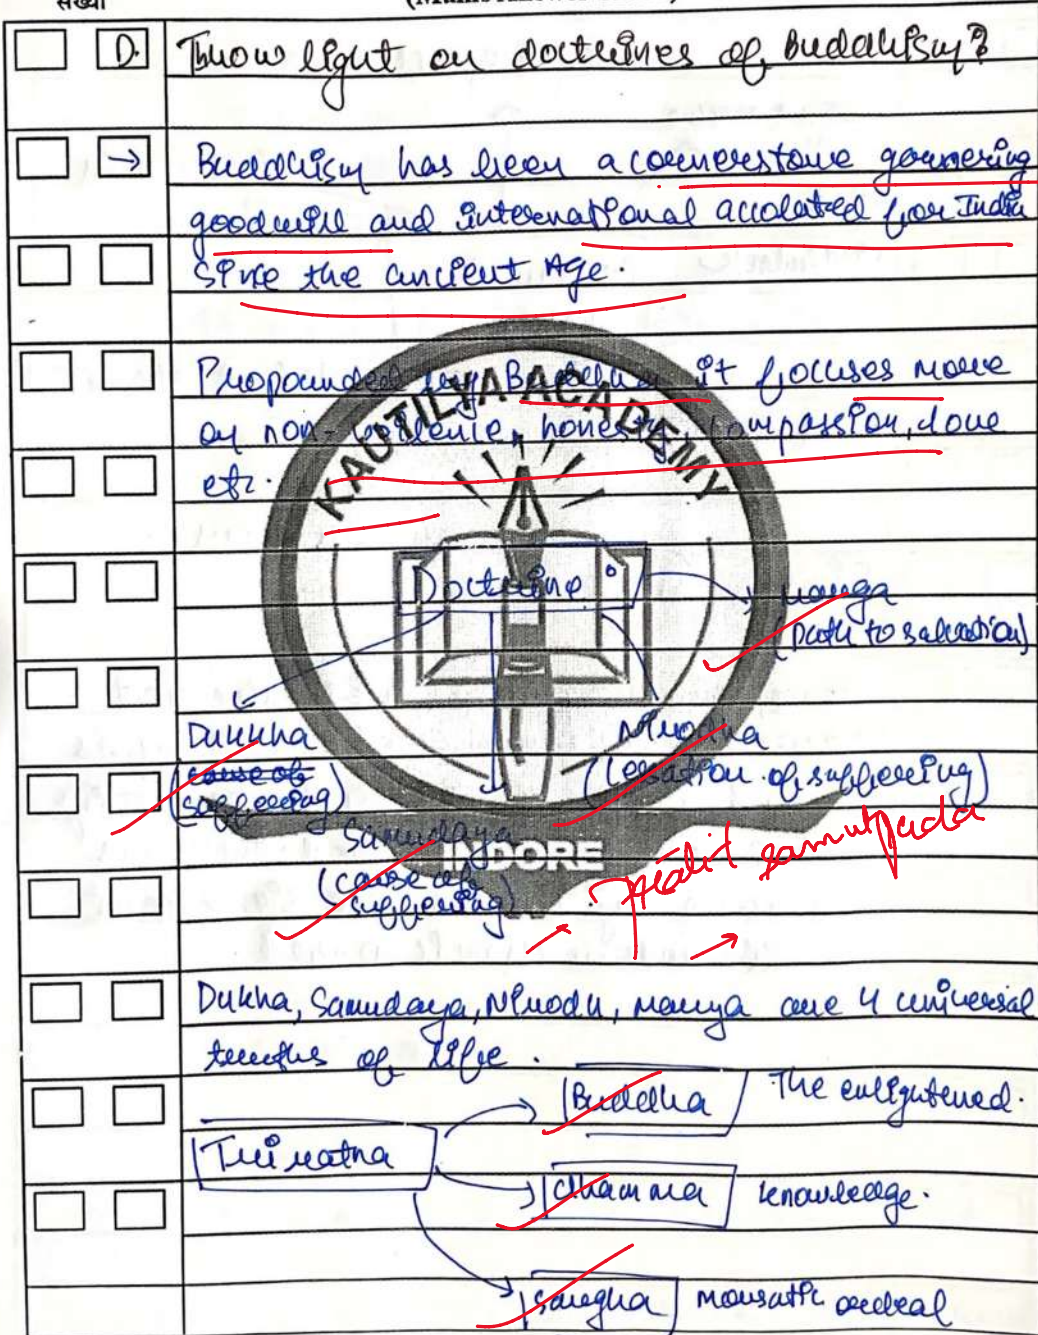 संख्या
D. Throw light on doctrines of Buddhism?
→ Buddhism has been a cornerstone garnering
goodwill and international accolated for India
since the ancient Age.
Propounded by Buddha it focuses more
on non-violence, honesty, compassion, love
etc.
KAUTILYA ACADEMY
Doctrine
marga
(path to salvation)
Dukkha
(cause of
suffering)
Nirodha
(cessation of suffering)
Samudaya
(cause of
suffering)
INDORE
Pratit samutpada
Dukha, Samudaya, Nirodh, marga are 4 universal
truths of life.
Tri ratna
Buddha The enlightened.
dhamma knowledge.
sangha